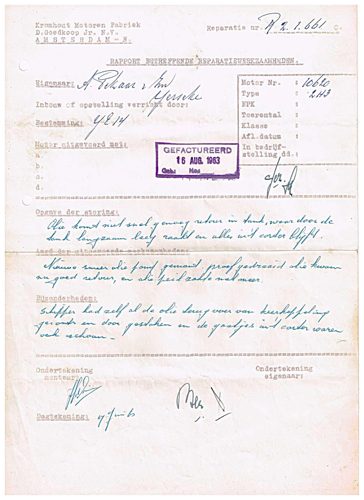 Kromhout Motoren Fabriek
D. Goedkoop Jr. N.V.
AMSTERDAM-N.
Reparatie nr. R 2.1.661
RAPPORT BETREFFENDE REPARATIEWERKZAAMHEDEN.
Eigenaar: A. en Zn
Yerseke
Inbouw of opstelling verricht door:
Bestemming: YE 14
Motor uitgevoerd met:
a.
b.
c.
d.
Motor Nr. : 10620
Type : 2H3
EPK :
Toerental :
Klasse :
Afl.datum :
In bedrijf-
stelling dd.:
GEFACTUREERD
16 AUG. 1963
Opgave der storing:
Olie komt niet snel genoeg retour in tank, waardoor de
tank langzaam leeg raakt en alles in 't carter blijft
Nieuwe smeer olie pomp gemaakt, proefgedraaid olie kwam
nu goed retour, en olie peil zakte niet meer.
Bijzonderheden:
Schipper had zelf al de olie terug voer van keerkoppeling
en door gestoken en de gaatjes in 't carter waren
ook schoon.
Ondertekening
monteur:
Ondertekening
eigenaar:
Dagtekening: